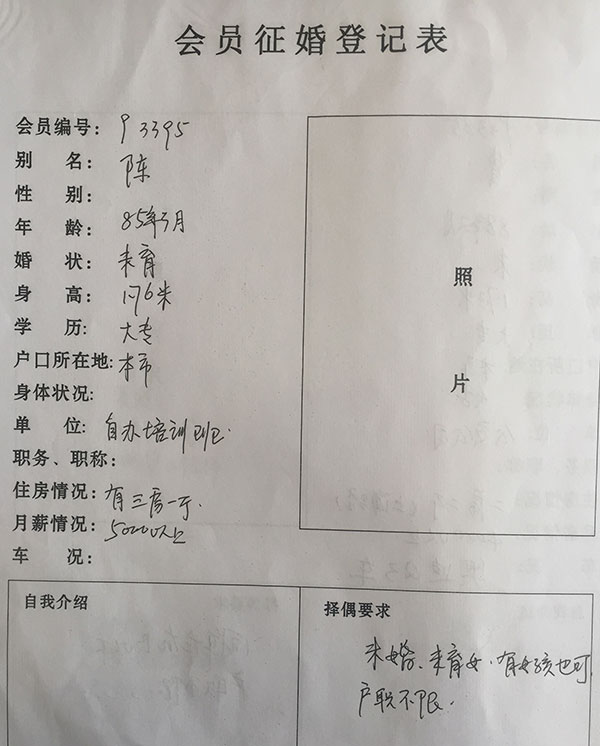 会员征婚登记表
会员编号: 93395
别 名: 陈
性 别:
年 龄: 85年3月
婚 状: 未育
身 高: 1.76米
学 历: 大专
户口所在地: 本市
身体状况:
单 位: 自办培训班.
职务、职称:
住房情况: 有三房一厅.
月薪情况: 5000以上
车 况:
照
片
自我介绍
择偶要求
未婚、未育女、有女孩也可
户职不限.